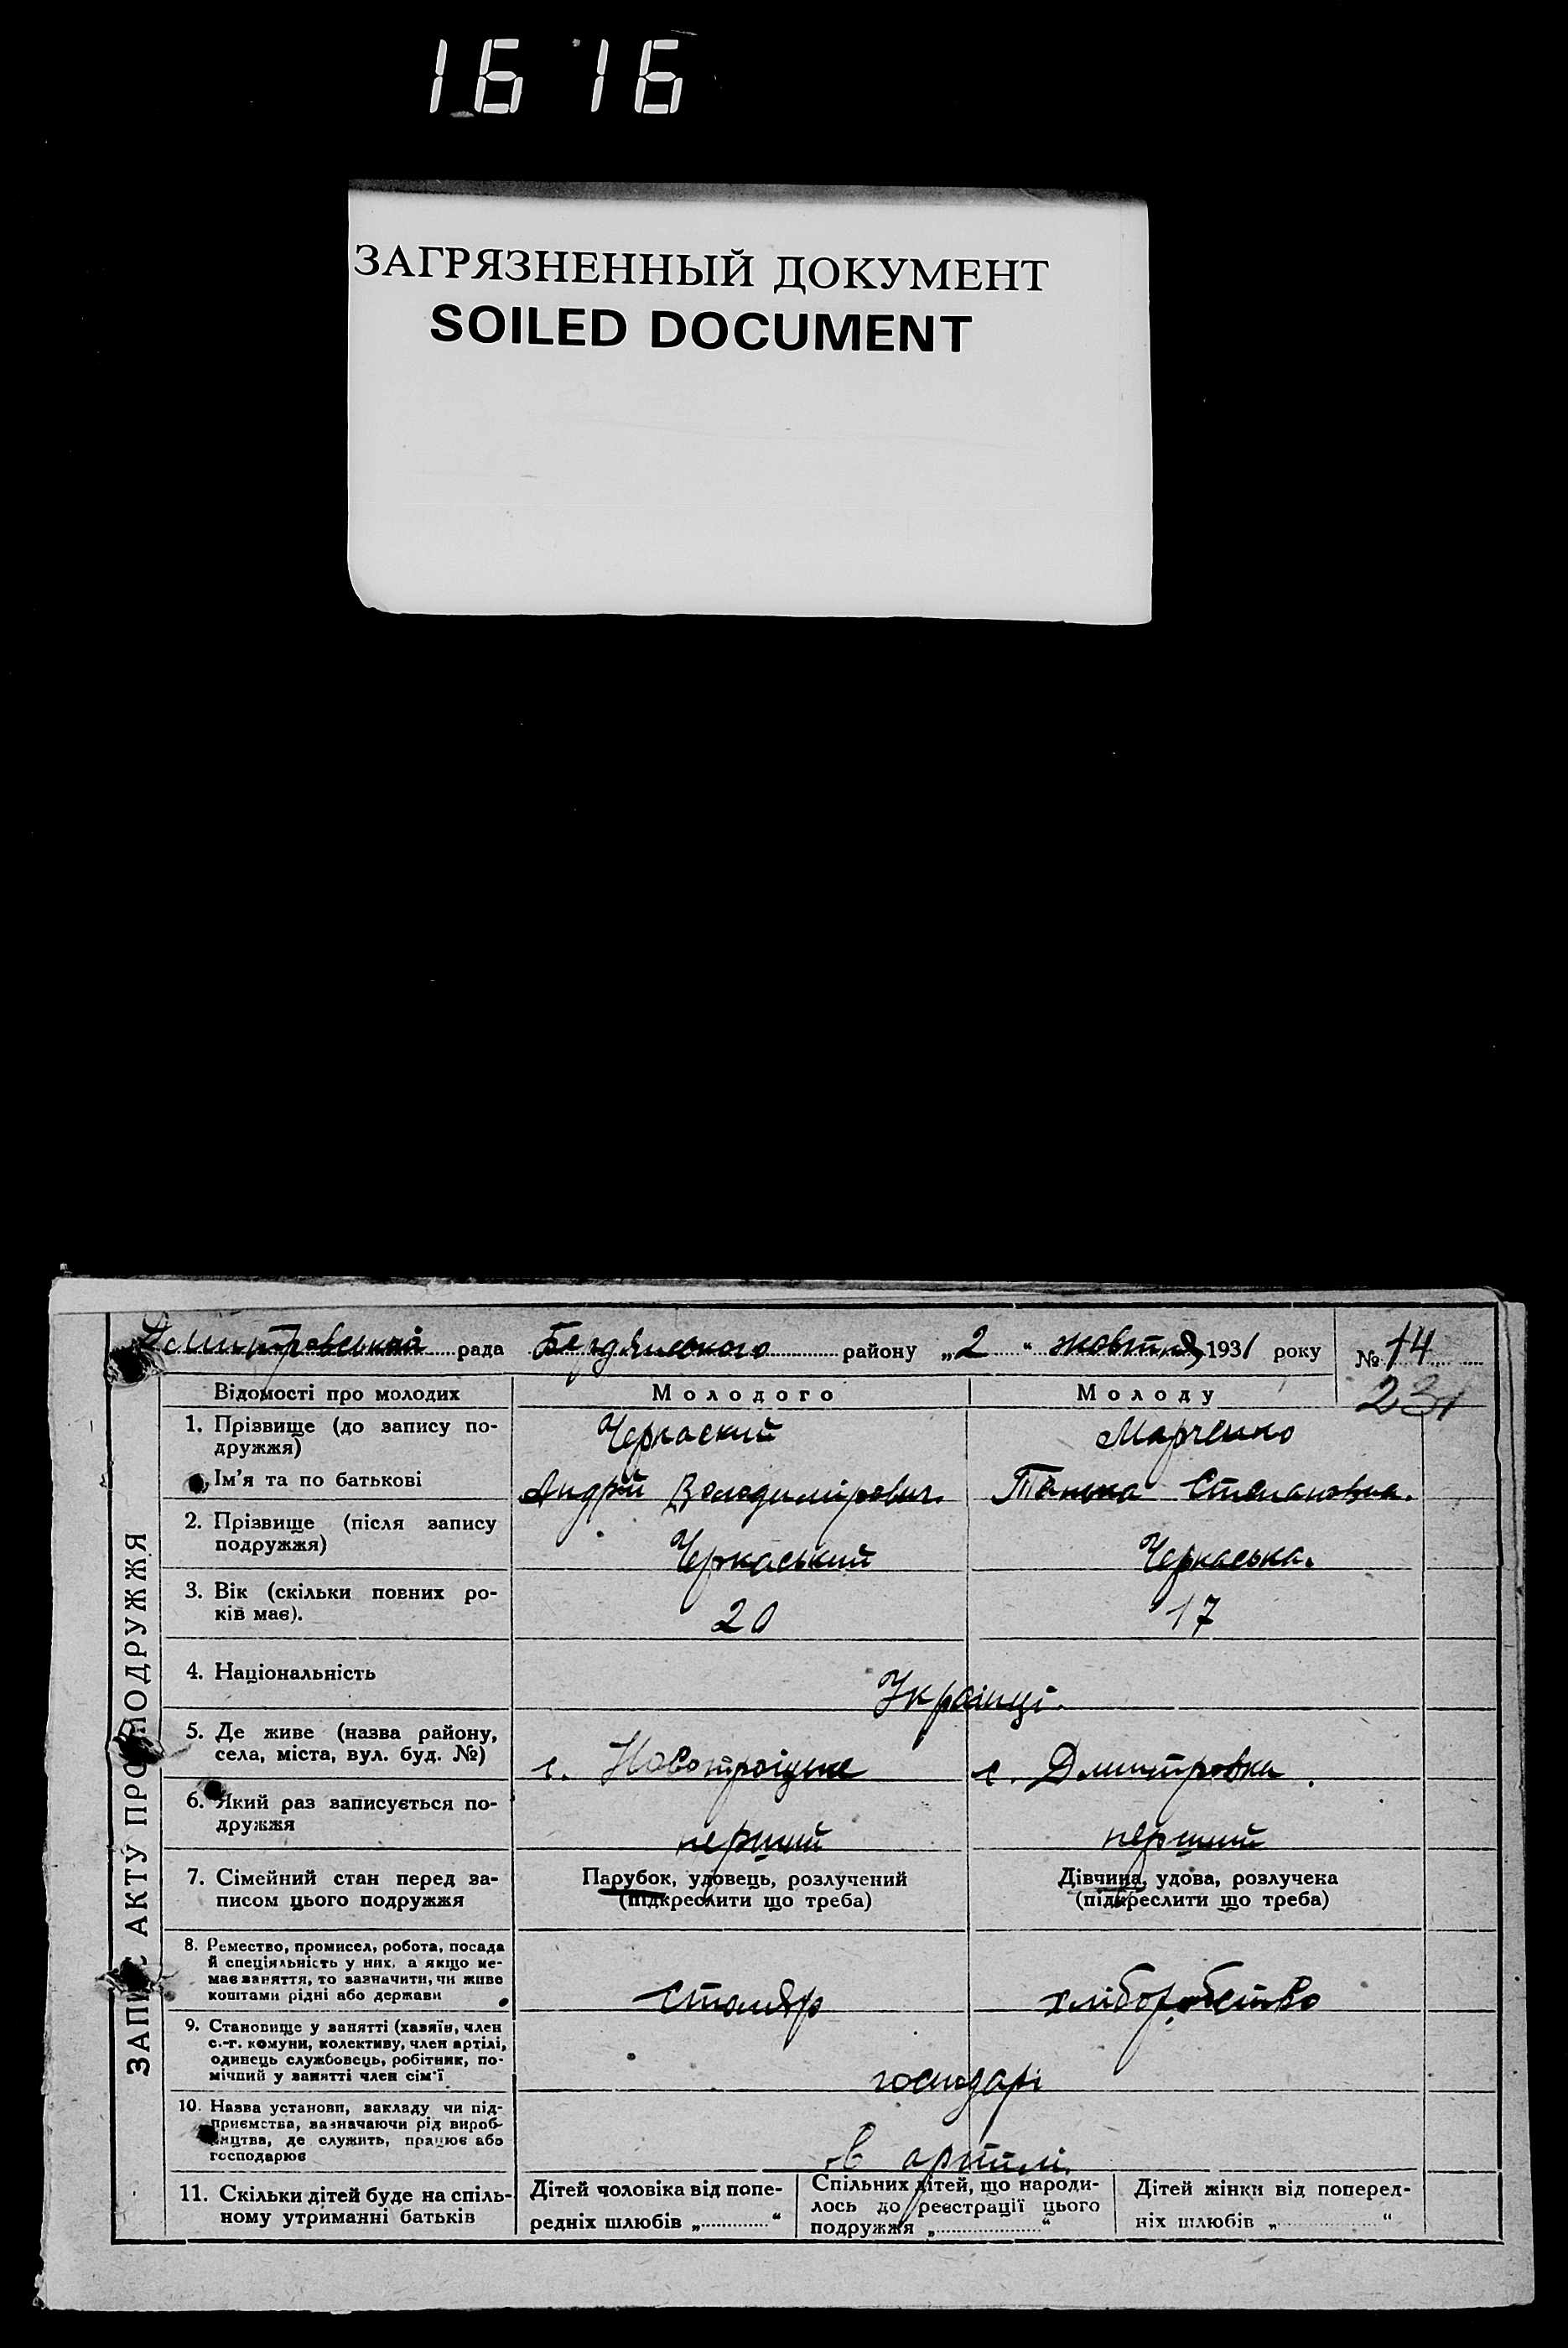 1616
ЗАГРЯЗНЕННЫЙ ДОКУМЕНТ
SOILED DOCUMENT
Дмитровський рада Бердянського району „2“ жовтня 1931 року № 14
231
ЗАПИС АКТУ ПРО ПОДРУЖЖЯ
Відомості про молодих Молодого Молоду
1. Прізвище (до запису по-
дружжя) Черкаский Марченко
Ім'я та по батькові Андрій Володимірович. Степановна.
2. Прізвище (після запису
подружжя) Черкаський Черкаська.
3. Вік (скільки повних ро-
ків має). 20 17
4. Національність Українці.
5. Де живе (назва району,
села, міста, вул. буд. №) с. Новотроїцьке с. Дмитровка
6. Який раз записується по-
дружжя перший перший
7. Сімейний стан перед за-
писом цього подружжя
Парубок, удовець, розлучений
(підкреслити що треба)
Дівчина, удова, розлучена
(підкреслити що треба)
8. Ремество, промисел, робота, посада
й спеціяльність у них, а якщо не-
має заняття, то зазначити, чи живе
коштами рідні або держави столяр хліборобство
9. Становище у занятті (хазяїн, член
с.-г. комуни, колективу, член артілі,
одинець службовець, робітник, по-
мічний у занятті член сім'ї господарі
10. Назва установи, закладу чи під-
приємства, зазначаючи рід вироб-
ництва, де служить, працює або
господарює в артілі.
11. Скільки дітей буде на спіль-
ному утриманні батьків
Дітей чоловіка від попе-
редніх шлюбів „ “
Спільних дітей, що народи-
лось до реєстрації цього
подружжя „ “
Дітей жінки від поперед-
ніх шлюбів „ “